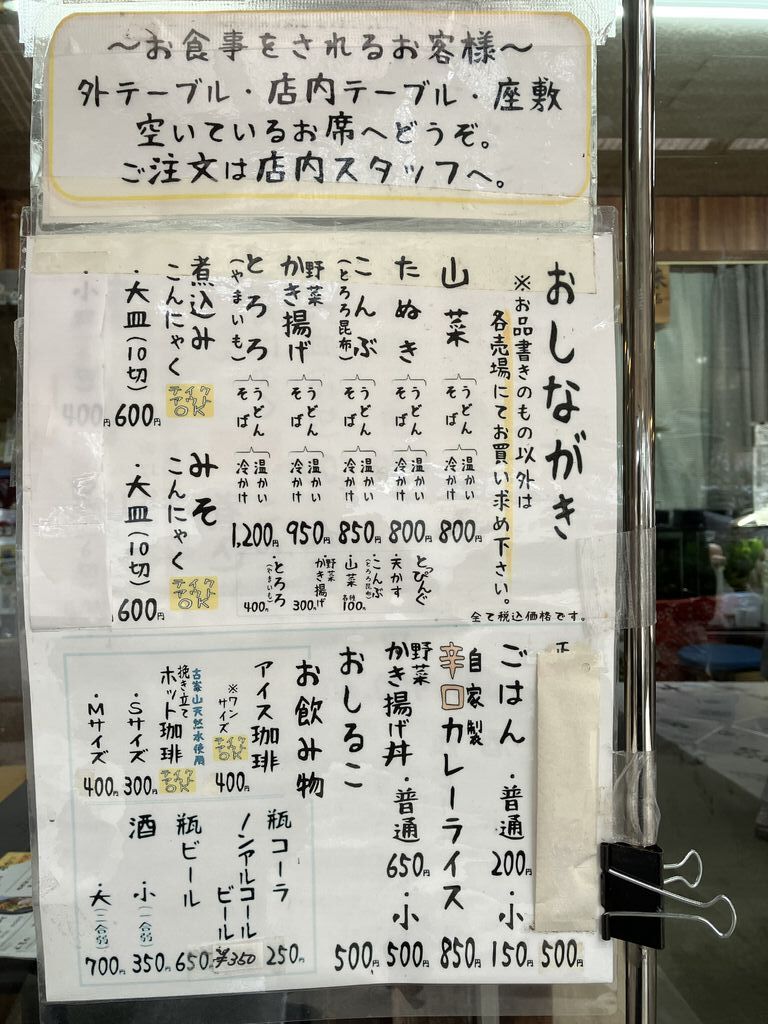 ～お食事をされるお客様～
外テーブル・店内テーブル・座敷
空いているお席へどうぞ。
ご注文は店内スタッフへ。
おしながき
※お品書きのもの以外は
各売場にてお買い求め下さい。
山菜 うどん そば 温かい 冷かけ 800円
たぬき うどん そば 温かい 冷かけ 800円
こんぶ (とろろ昆布) うどん そば 温かい 冷かけ 850円
野菜かき揚げ うどん そば 温かい 冷かけ 950円
とろろ (やまいも) うどん そば 温かい 冷かけ 1,200円
とっぴんぐ
・天かす
・こんぶ (とろろ昆布)
・山菜 各種 100円
・野菜かき揚げ 300円
・とろろ (やまいも) 400円
煮込みこんにゃく テイクアウトOK
・大皿(10切) 600円
みそこんにゃく テイクアウトOK
・大皿(10切) 600円
・小 400円
全て税込価格です。
正
500円
ごはん ・普通 200円 ・小 150円
自家製 辛口カレーライス 850円
野菜かき揚げ丼 ・普通 650円 ・小 500円
おしるこ 500円
お飲み物
アイス珈琲
※ワンサイズ テイクアウトOK 400円
古峯山天然水使用
挽き立てホット珈琲 テイクアウトOK
・Sサイズ 300円
・Mサイズ 400円
瓶コーラ 250円
ノンアルコールビール ¥350
瓶ビール 650円
酒 ・小(一合弱) 350円
・大(二合弱) 700円